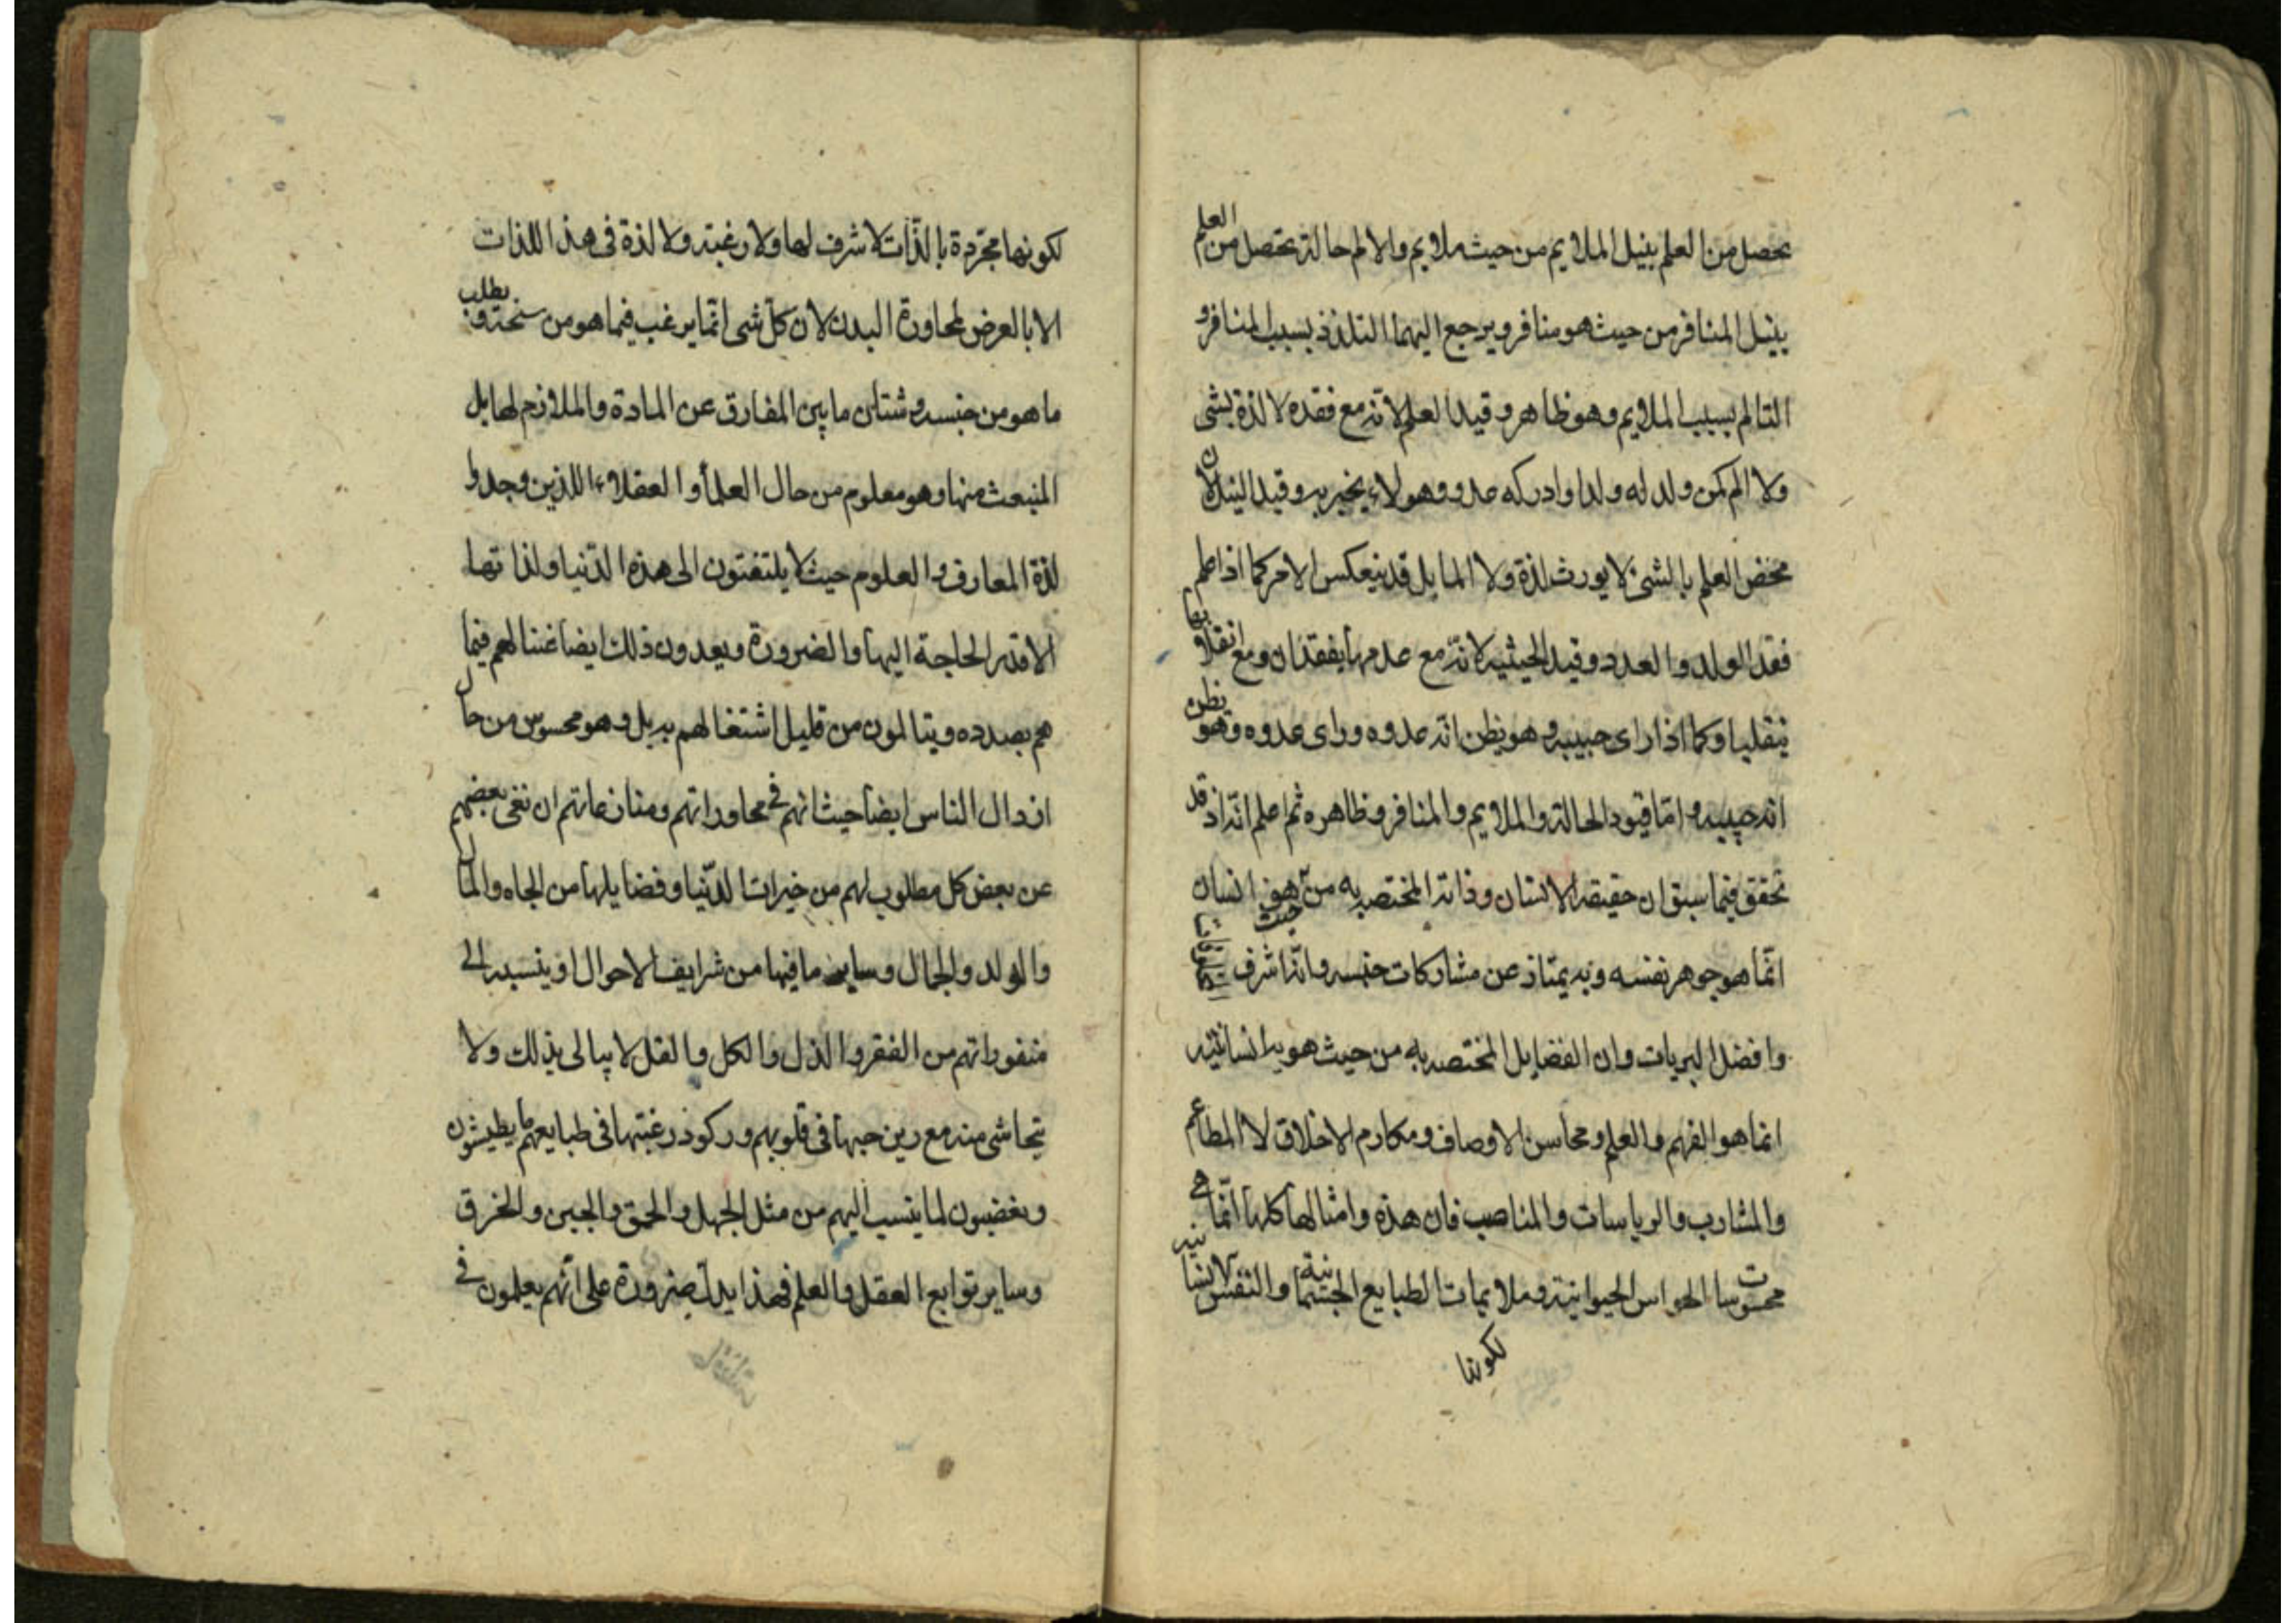 يحصل من العلم بنيل الملايم من حيث ملايم والالم حالة تحصل من العلم
بنيل المنافر من حيث هو منافر ويرجع اليهما التلذذ بسبب المنافر و
التالم بسبب الملايم وهو ظاهر وقيد العلم لانه مع فقده لا لذة بشى
ولا الم كمن ولد له ولد او ادركه عدو وهو لا يخبر به وقيد النيل لان
محض العلم بالشئ لا يورث لذة ولا الما بل قد ينعكس الامر كما اذا علم
فقد الولد والعدو وقيد الحيثية لانه مع عدمها يفقدان ومع انقلابها
ينقلبا وكما اذا راى حبيبه وهو يظن انه عدوه وراى عدوه وهو يظن
انه حبيبه واما قيود الحالة والملايم والمنافر وظاهره ثم اعلم انه اذ قد
تحقق فيما سبق ان حقيقة الانسان وذاته المختصة به من حيث هو انسان
انما هو جوهر نفسه وبه يمتاز عن مشاركات جنسه وانه اشرف
وافضل البريات وان الفضايل المختصة به من حيث هو به انسانيته
انما هو الفهم والعلم ومحاسن الاوصاف ومكارم الاخلاق لا المطاعم
والمشارب والرياسات والمناصب فان هذه وامثالها كلها انما هي
محسوسات الحواس الحيوانية وملايمات الطبايع الجسمانية والنفس الانسانية
لكونها
لكونها مجردة بالذات لا شرف لها ولا رغبة ولا لذة فى هذا اللذات
الا بالعرض لمجاورة البدن لان كل شى انما يرغب فيما هو من سنخه ويطلب
ما هو من جنسه وشتان ما بين المفارق عن المادة والملازم لها بل
المنبعث منها وهو معلوم من حال العلمأ والعقلاء اللذين وجدوا
لذة المعارف والعلوم حيث لا يلتفتون الى هذه الدنيا ولذاتها
الا قدر الحاجة اليها والضرورة ويعدون ذلك ايضا غبنا لهم فيما
هم بصدده ويتالمون من قليل اشتغالهم به بل وهو محسوس من حال
ارذال الناس ايضا حيث انهم في محاوراتهم ومنازعاتهم ان نفى بعضهم
عن بعض كل مطلوب لهم من خيرات الدنيا وفضايلها من الجاه والمال
والولد والجمال وساير ما فيها من شرايف الاحوال او ينسبه الى
منفوراتهم من الفقر والذل والكل والقل لا يبالى بذلك ولا
يتحاشى منه مع رين حبها فى قلوبهم وركوز رغبتها فى طبايعهم كما يطيشون
ويغضبون لما ينسب اليهم من مثل الجهل والحمق والجبن والخرق
وساير توابع العقل والعلم فهذا يدل ضرورة على انهم يعلمون في